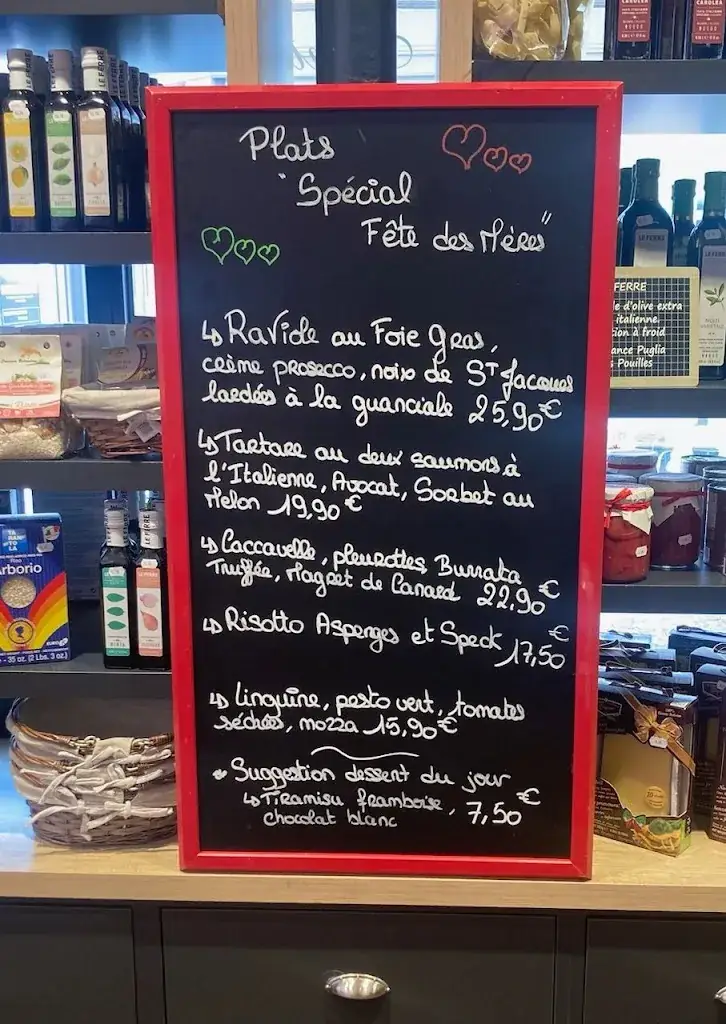 Plats
"Spécial
Fête des Mères"
↳ Raviole au Foie Gras,
crème prosecco, noix de St Jacques
lardées à la guanciale 25,90€
↳ Tartare au deux saumons à
l'Italienne, Avocat, Sorbet au
Melon 19,90€
↳ Caccavelle, pleurottes, Burrata
Truffée, Magret de Canard 22,90€
↳ Risotto Asperges et Speck 17,50€
↳ Linguine, pesto vert, tomates
séchées, mozza 15,90€
Suggestion dessert du jour
↳ Tiramisu framboise, 7,50€
chocolat blanc
LE FERRE
FERRE
e d'olive extra
italienne
ion à froid
ance Puglia
s Pouilles
LE FERRE
Riso
rborio
35 oz. (2 Lbs. 3 oz.)